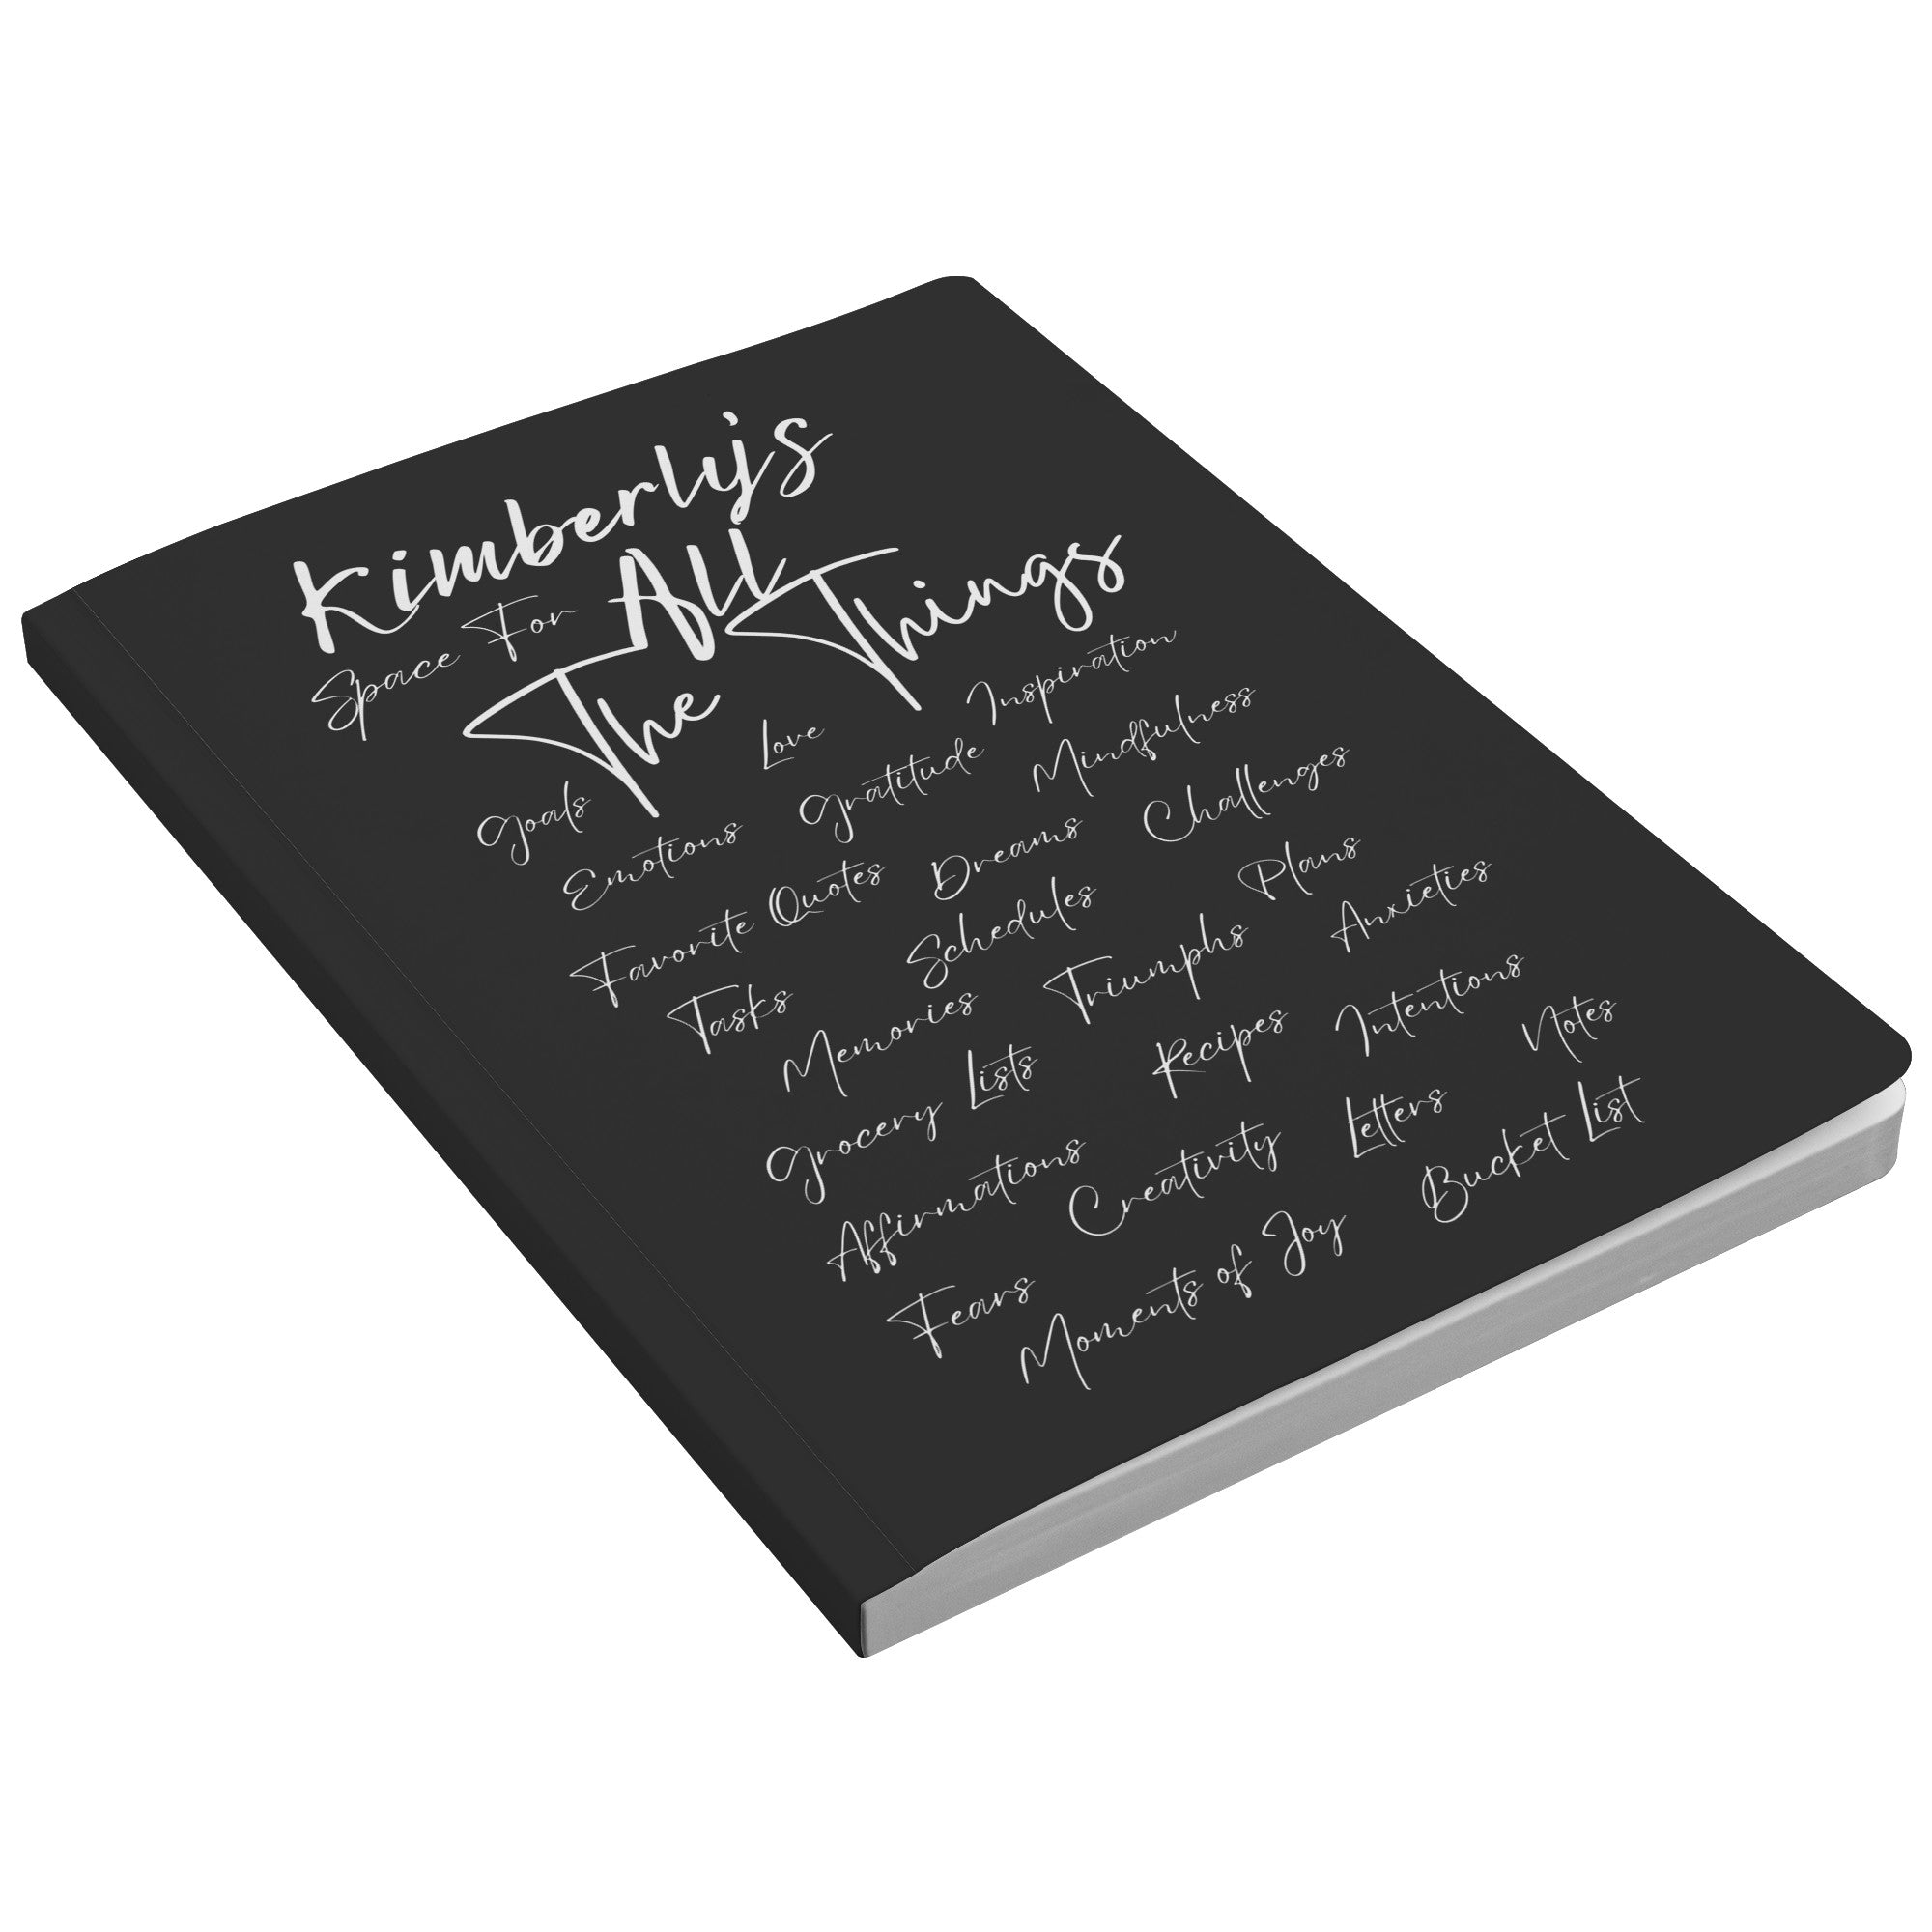 Kimberly's
Space For All
The Things
Goals Love Inspiration
Emotions Gratitude Mindfulness
Favorite Quotes Dreams Challenges
Tasks Schedules Plans
Memories Triumphs Anxieties
Grocery Lists Recipes Intentions
Affirmations Creativity Letters Notes
Fears Moments of Joy Bucket List